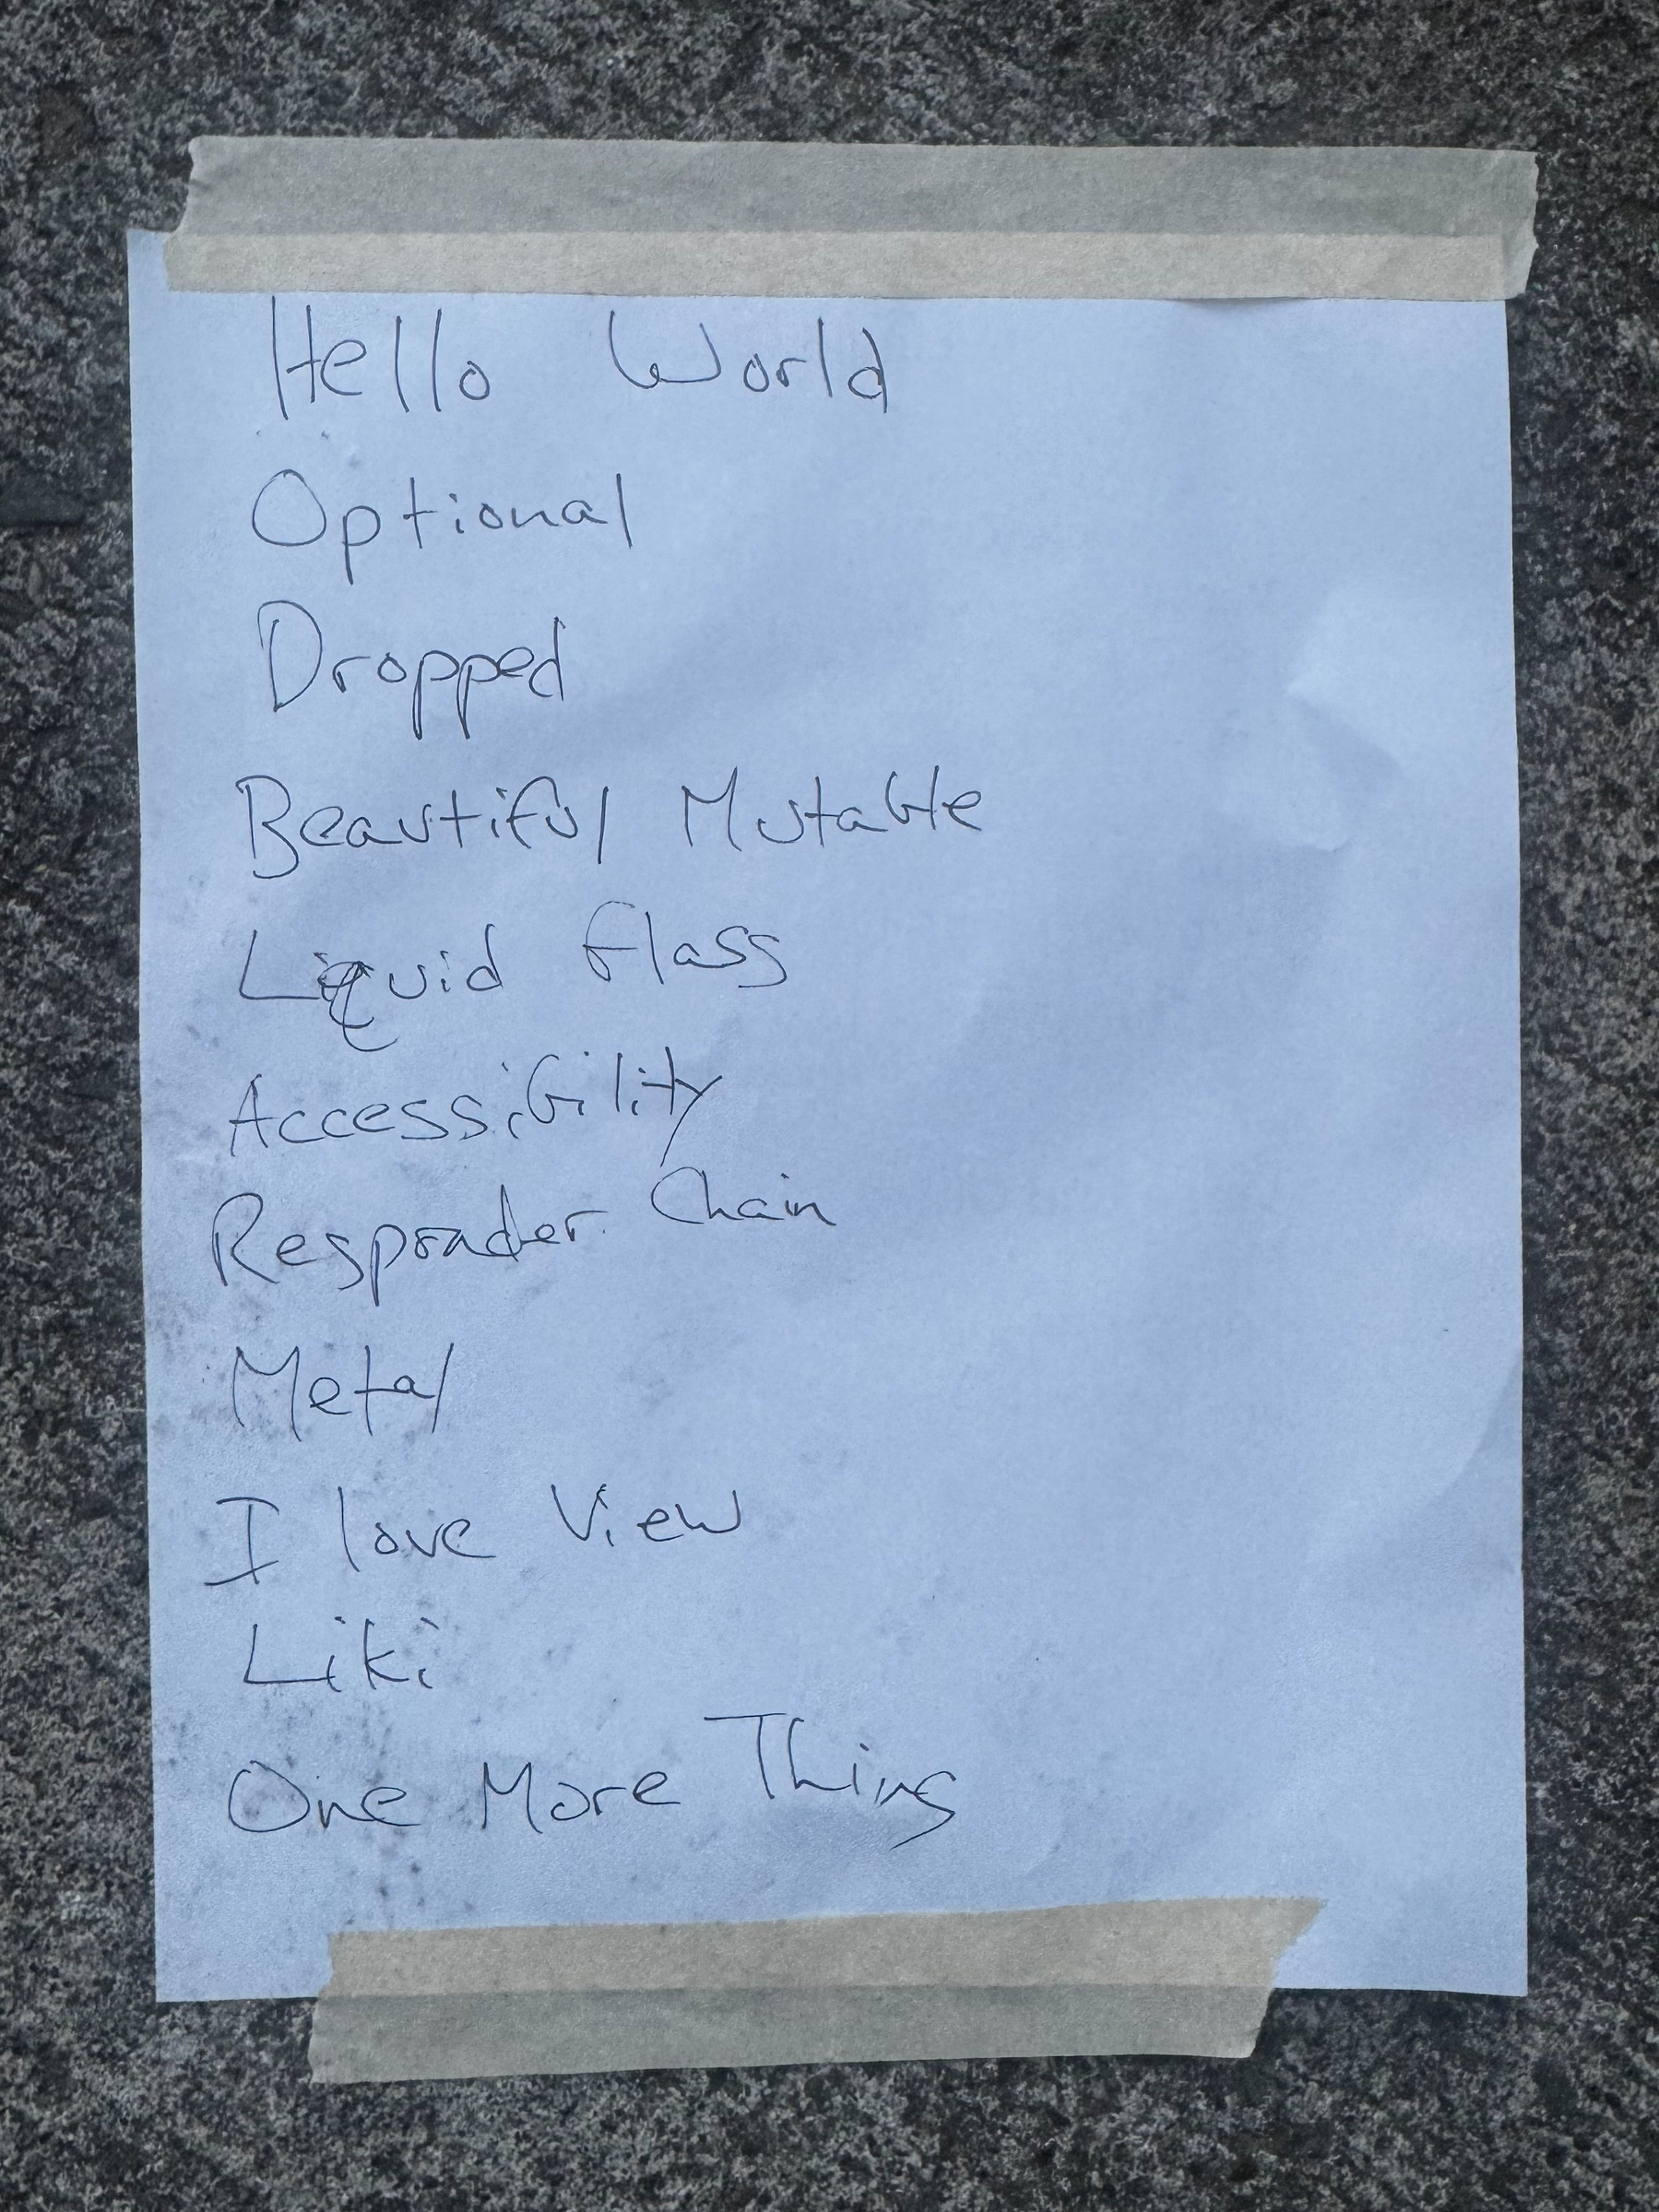 Hello World
Optional
Dropped
Beautiful Mutable
Liquid Glass
Accessibility
Responder Chain
Metal
I love View
Liki
One More Thing